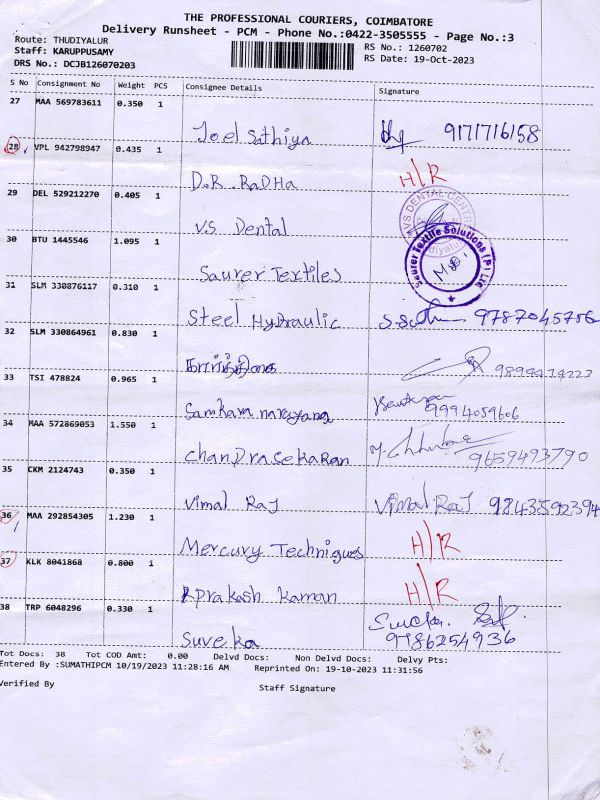 THE PROFESSIONAL COURIERS, COIMBATORE
Delivery Runsheet - PCM - Phone No.:0422-3505555 - Page No.:3
Route: THUDIYALUR
RS No.: 1260702
Staff: KARUPPUSAMY
RS Date: 19-Oct-2023
DRS No.: DCJB126070203
S No Consignment No Weight PCS Consignee Details Signature
27 MAA 569783611 0.350 1
Joel Sathiya 9171716158
28 VPL 942798947 0.435 1
D.R. RaDHa H/R
29 DEL 529212270 0.405 1
V.S Dental VS DENTAL CENTRE
30 BTU 1445546 1.095 1
Saurer Textiles Saurer Textile Solutions (P) Ltd
31 SLM 330876117 0.310 1
Steel Hydraulic 9787045756
32 SLM 330864961 0.830 1
33 TSI 478824 0.965 1
Samkara narayana 9994059606
34 MAA 572869053 1.550 1
ChanDrasekaran 9659493790
35 CKM 2124743 0.350 1
Vimal Raj Vimal Raj 9843592394
36 MAA 292854305 1.230 1
Mercury Techniques H/R
37 KLK 8041868 0.800 1
R Prakash Kaman H/R
38 TRP 6048296 0.330 1
Suveka 9786254936
Tot Docs: 38 Tot COD Amt: 0.00 Delvd Docs: Non Delvd Docs: Delvy Pts:
Entered By :SUMATHIPCM 10/19/2023 11:28:16 AM Reprinted On: 19-10-2023 11:31:56
Verified By
Staff Signature